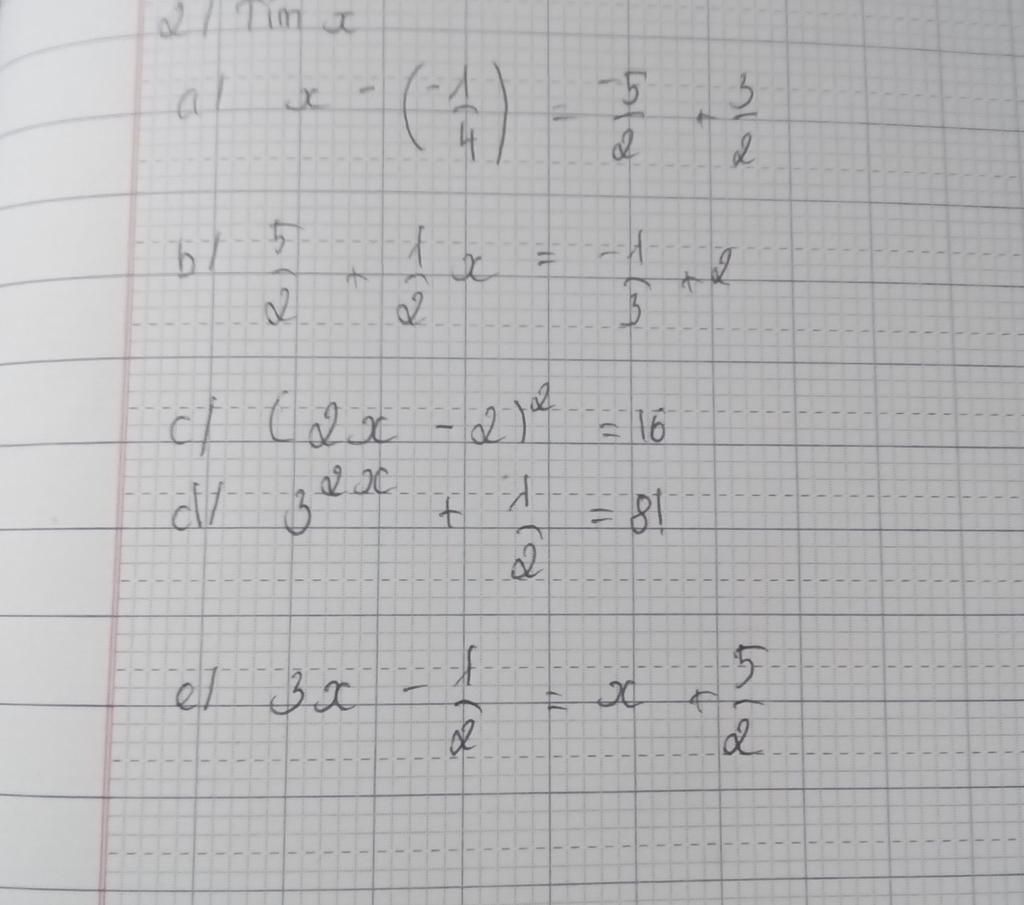 2/ Tìm x
a/ x - (-1/4) = -5/2 + 3/2
b/ 5/2 + 1/2 x = -1/3 + 2
c/ (2x - 2)² = 16
d/ 3²ˣ + 1/2 = 81
e/ 3x - 1/2 = x + 5/2